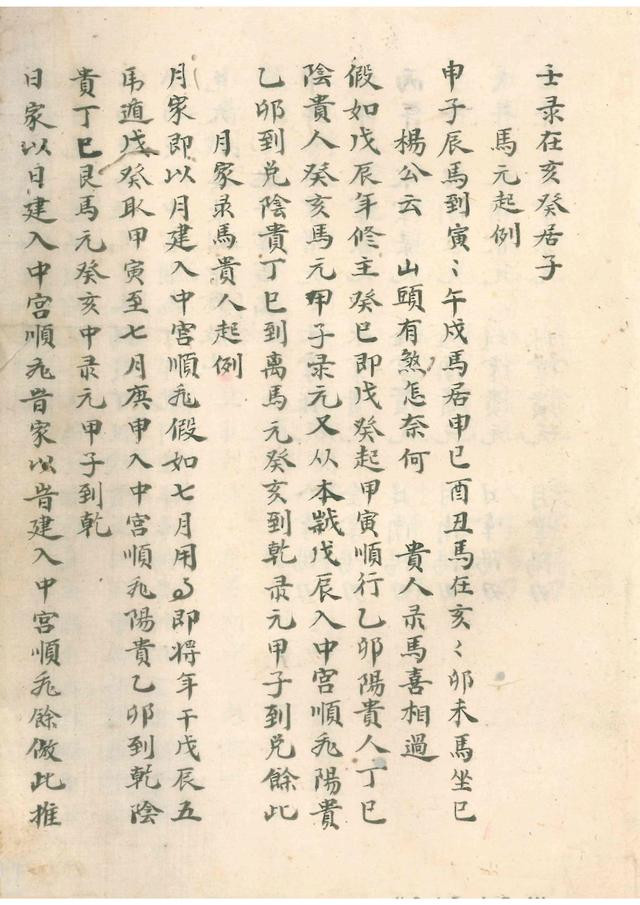 壬录在亥癸居子
馬元起例
申子辰馬到寅〻午戍馬居申巳酉丑馬在亥〻卯未馬坐巳
楊公云 山頭有煞怎奈何 貴人录馬喜相過
假如戊辰年修主癸巳即戊癸起甲寅順行乙卯陽貴人丁巳
陰貴人癸亥馬元甲子录元又从本戊辰入中宮順飛陽貴
乙卯到兌陰貴丁巳到离馬元癸亥到乾录元甲子到兌餘此
月家录馬貴人起例
月家即以月建入中宮順飛假如七月用即將年干戊辰五
馬遁戊癸取甲寅至七月庚申入中宮順飛陽貴乙卯到乾陰
貴丁巳艮馬元癸亥中录元甲子到乾
日家以日建入中宮順飛旹家以旹建入中宮順飛餘倣此推